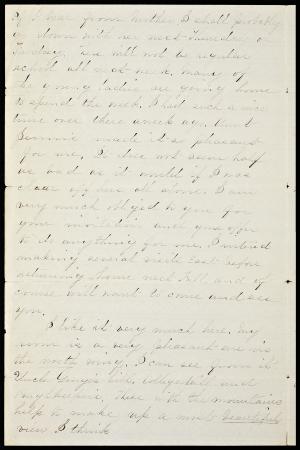 If I hear from Mother I shall probably
go down with her next Thursday or
Tuesday. There will not be regular
school all next week. many of
the young ladies are going home
to spend the week. I had such a nice
time over there a week ago. Aunt
Jennie made it so pleasant
for me. It does not seem half
as bad as it would if I was
clear off here all alone. I am
very much obliged to you for
your invitation and your offer
to do anything for me. I intend
making several visits East before
returning home next Fall, and of
course will want to come and see
you.
I like it very much here. My
room is a very pleasant one in
the north wing. I can see from it
Uncle and
these with the mountains
help to make up a most beautiful
view I think